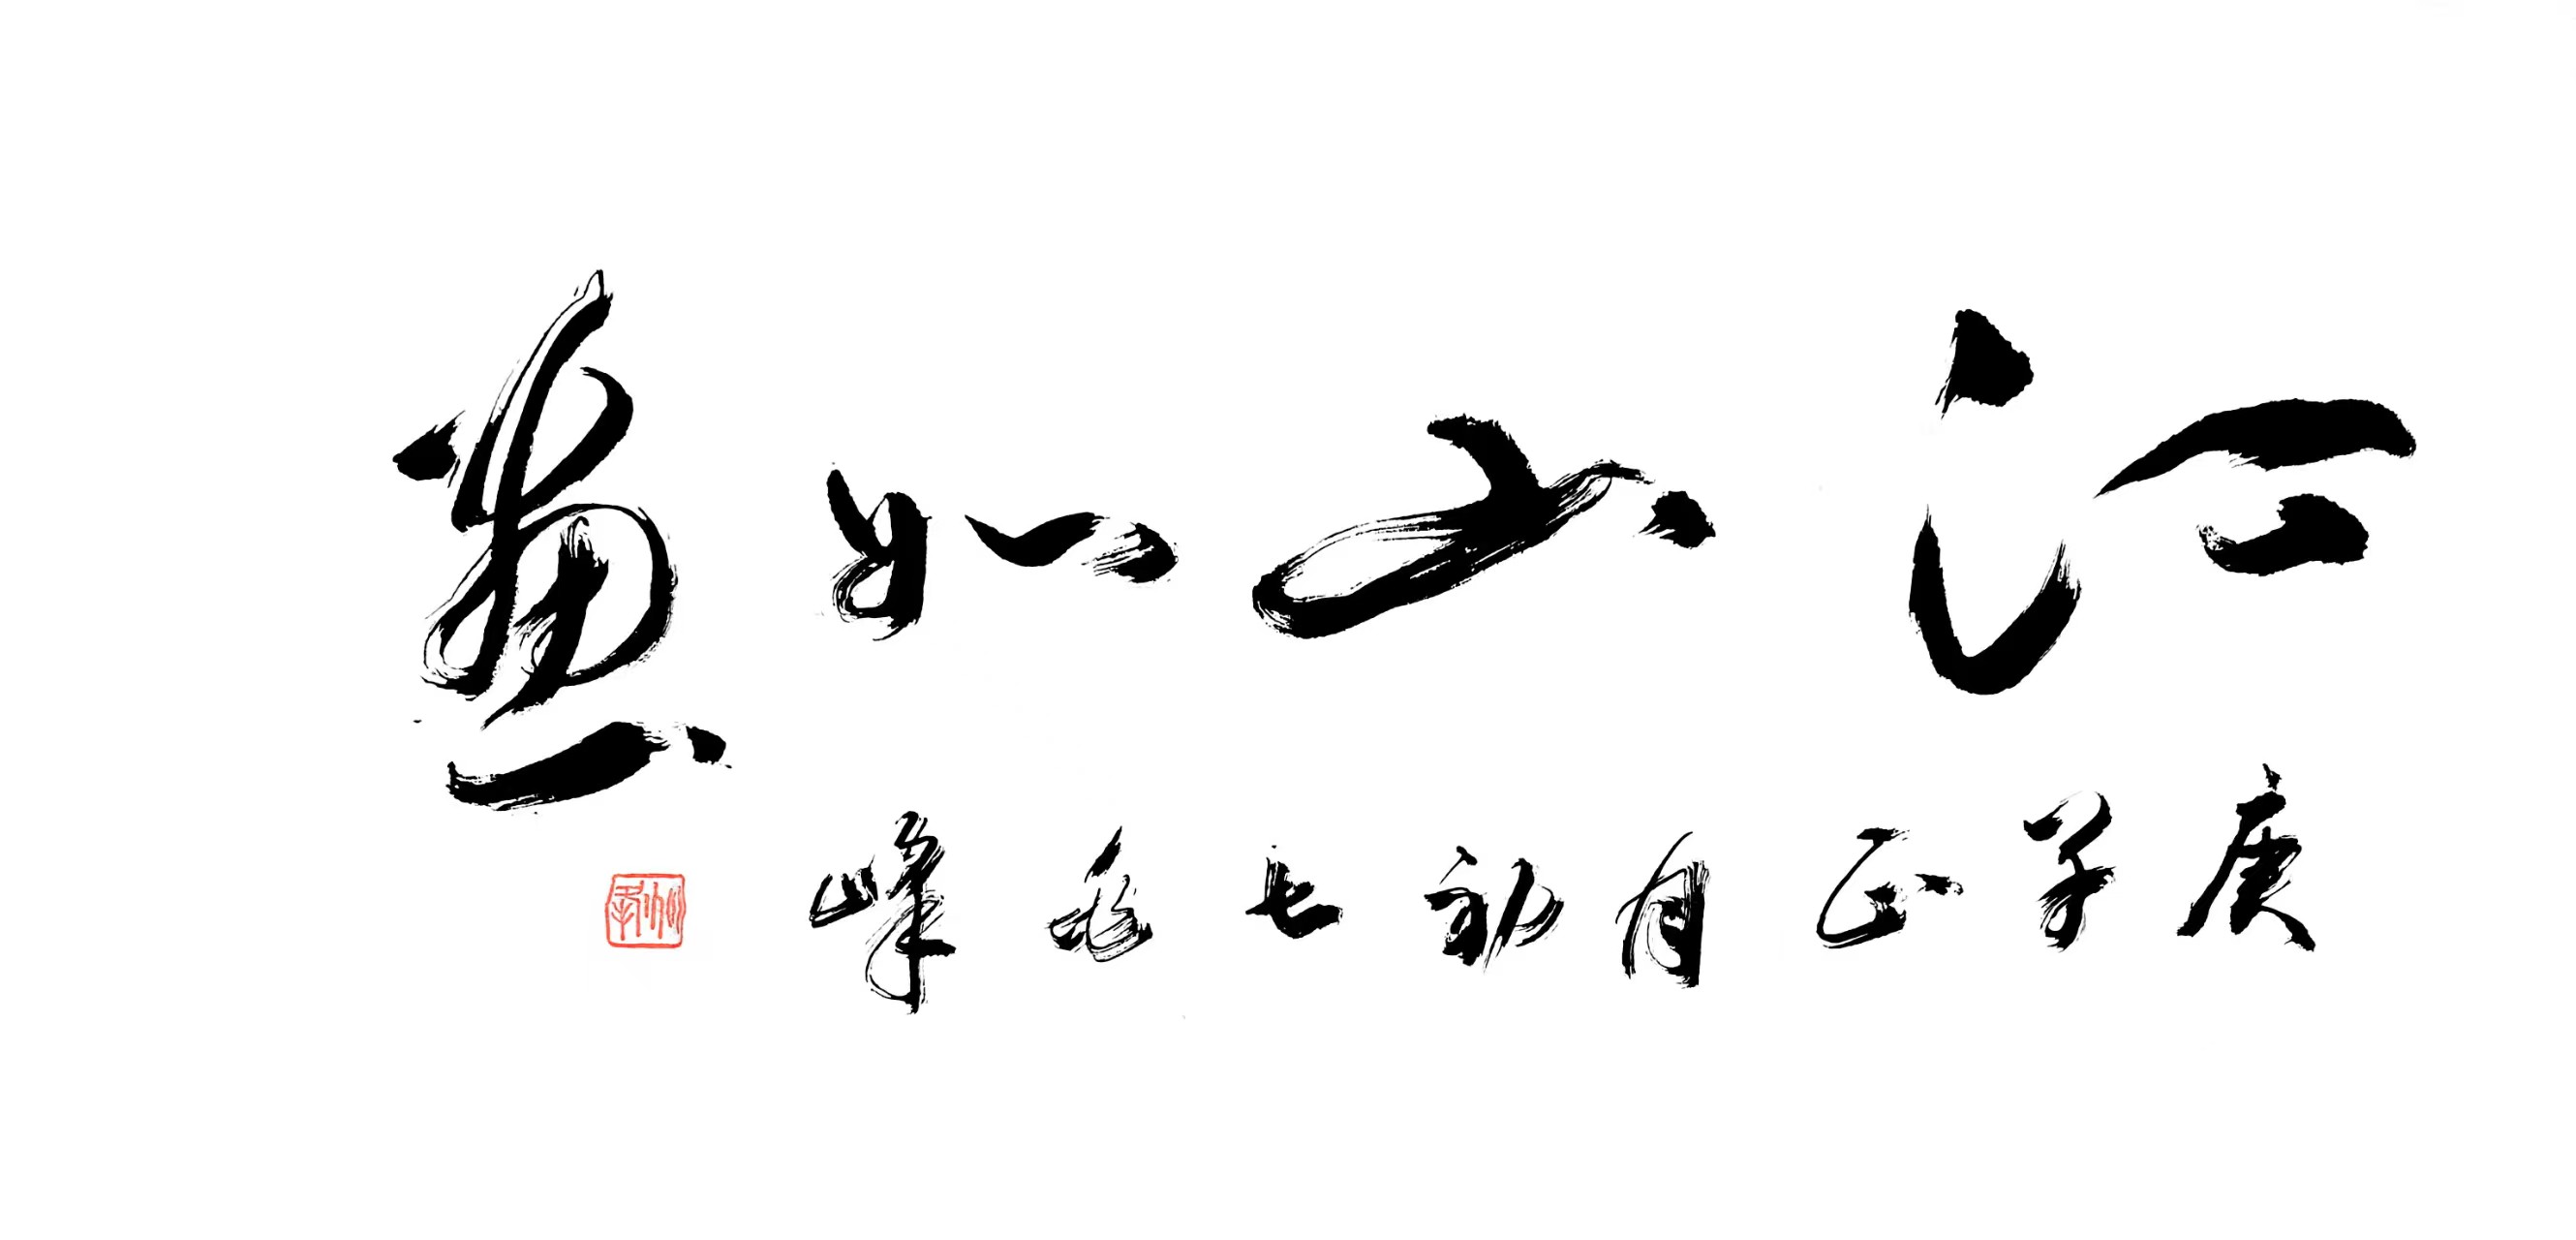 江山如畫
庚子正月初七 峰